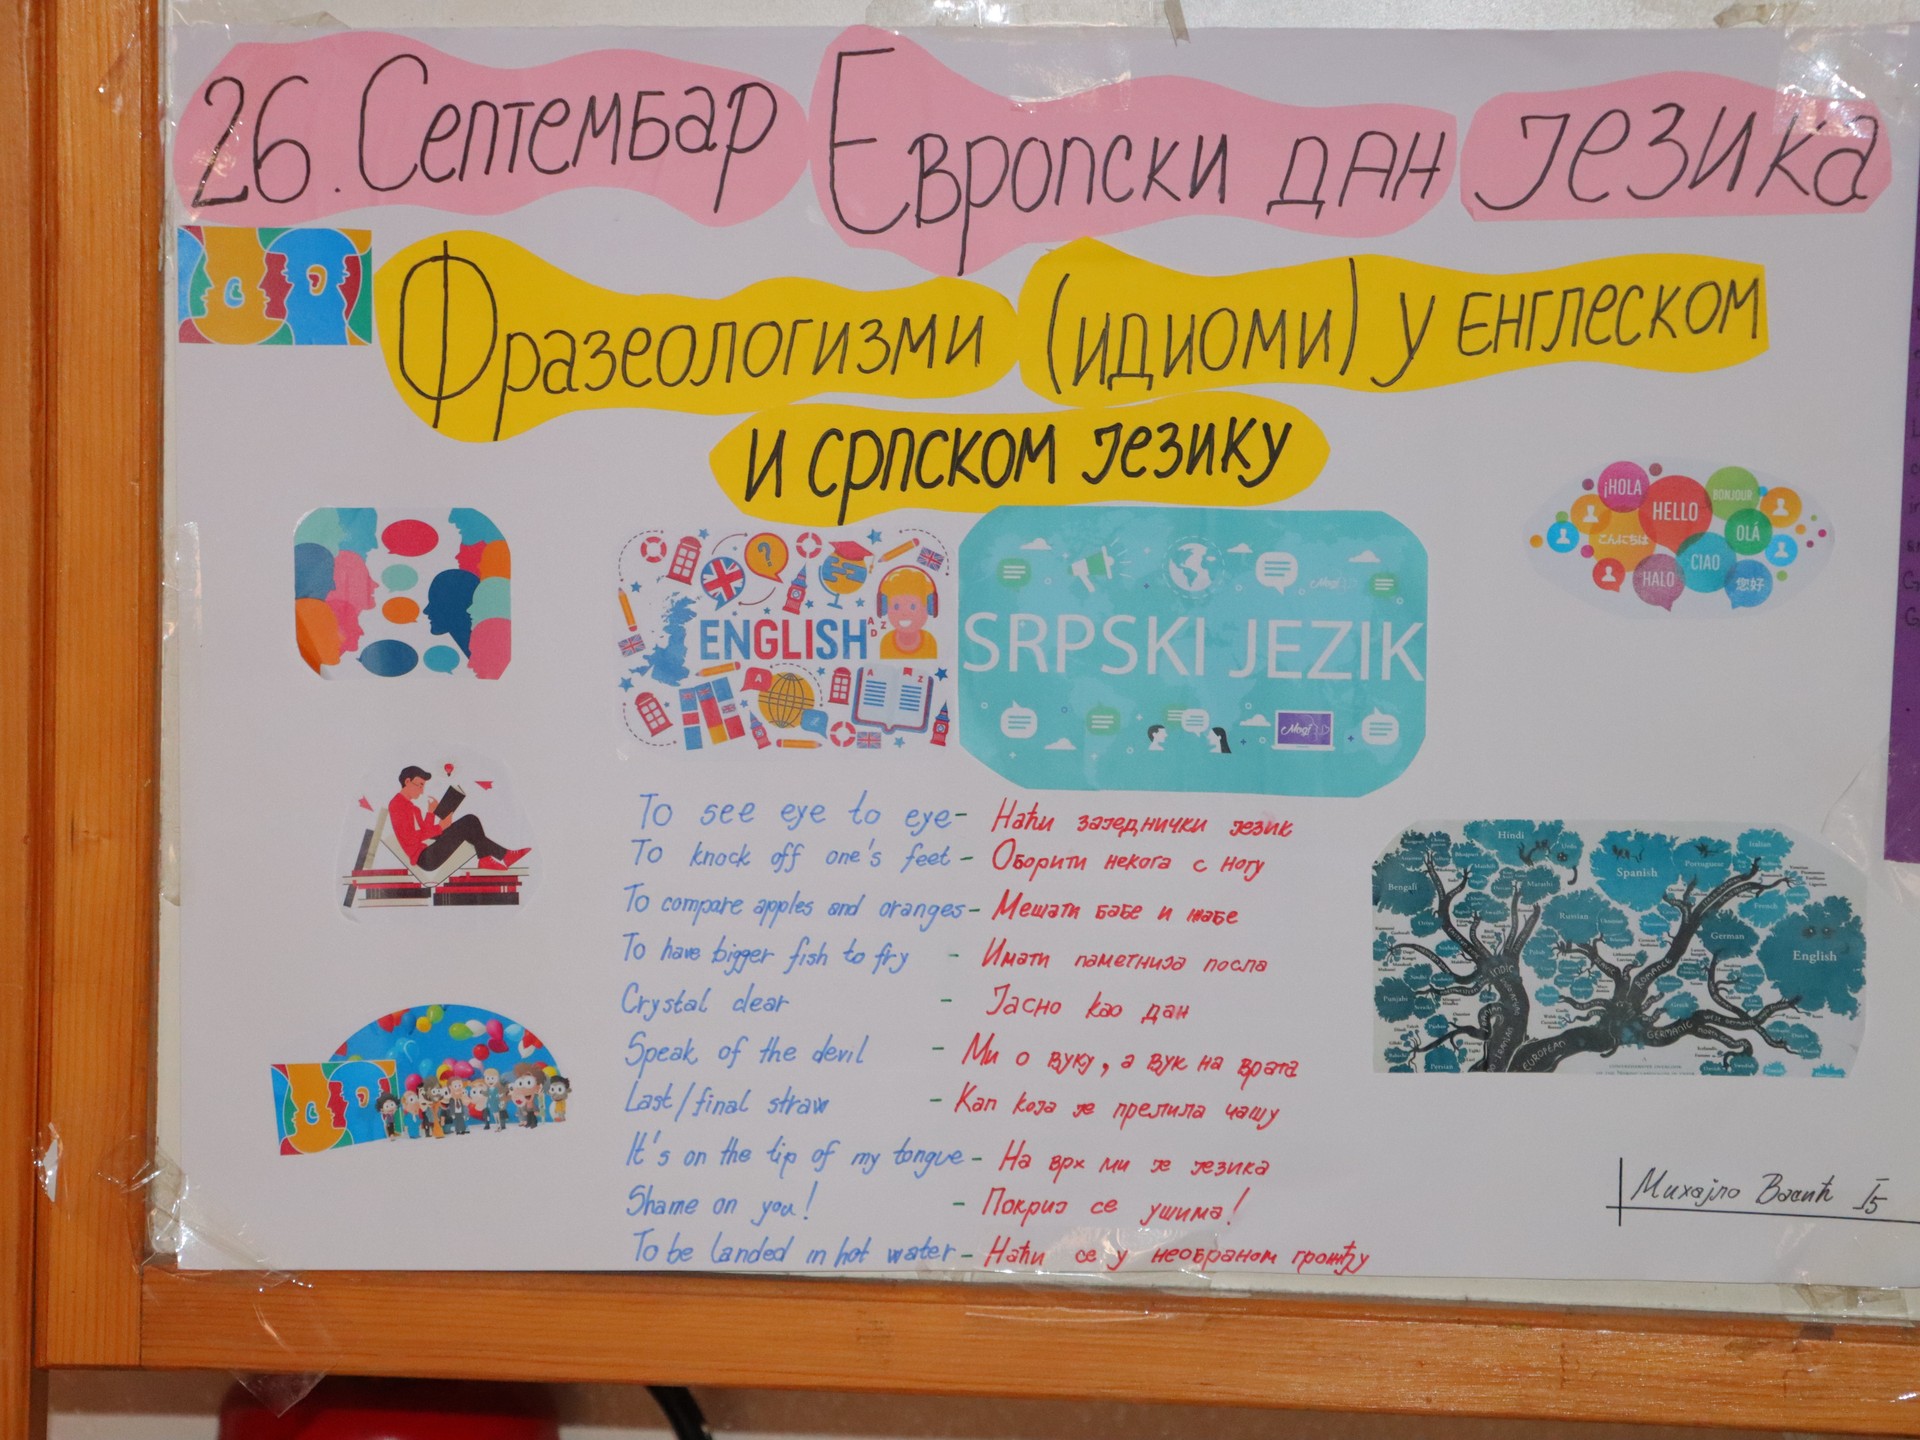 26. Септембар Европски дан језика
Фразеологизми (идиоми) у енглеском
и српском језику
ENGLISH
SRPSKI JEZIK
¡HOLA
HELLO
BONJOUR
こんにちは
OLÁ
CIAO
HALO
您好
To see eye to eye - Наћи заједнички језик
To knock off one's feet - Оборити некога с ногу
To compare apples and oranges - Мешати бабе и жабе
To have bigger fish to fry - Имати паметнија посла
Crystal clear - Јасно као дан
Speak of the devil - Ми о вуку, а вук на врата
Last/final straw - Кап која је прелила чашу
It's on the tip of my tongue - На врх ми је језика
Shame on you! - Покриј се ушима!
To be landed in hot water - Наћи се у необраном грожђу
Hindi
Bengali
Marathi
Punjabi
Persian
Spanish
Portuguese
Italian
French
Russian
German
English
INDIC
ROMANCE
GERMANIC
EUROPEAN
Михајло Васић I5